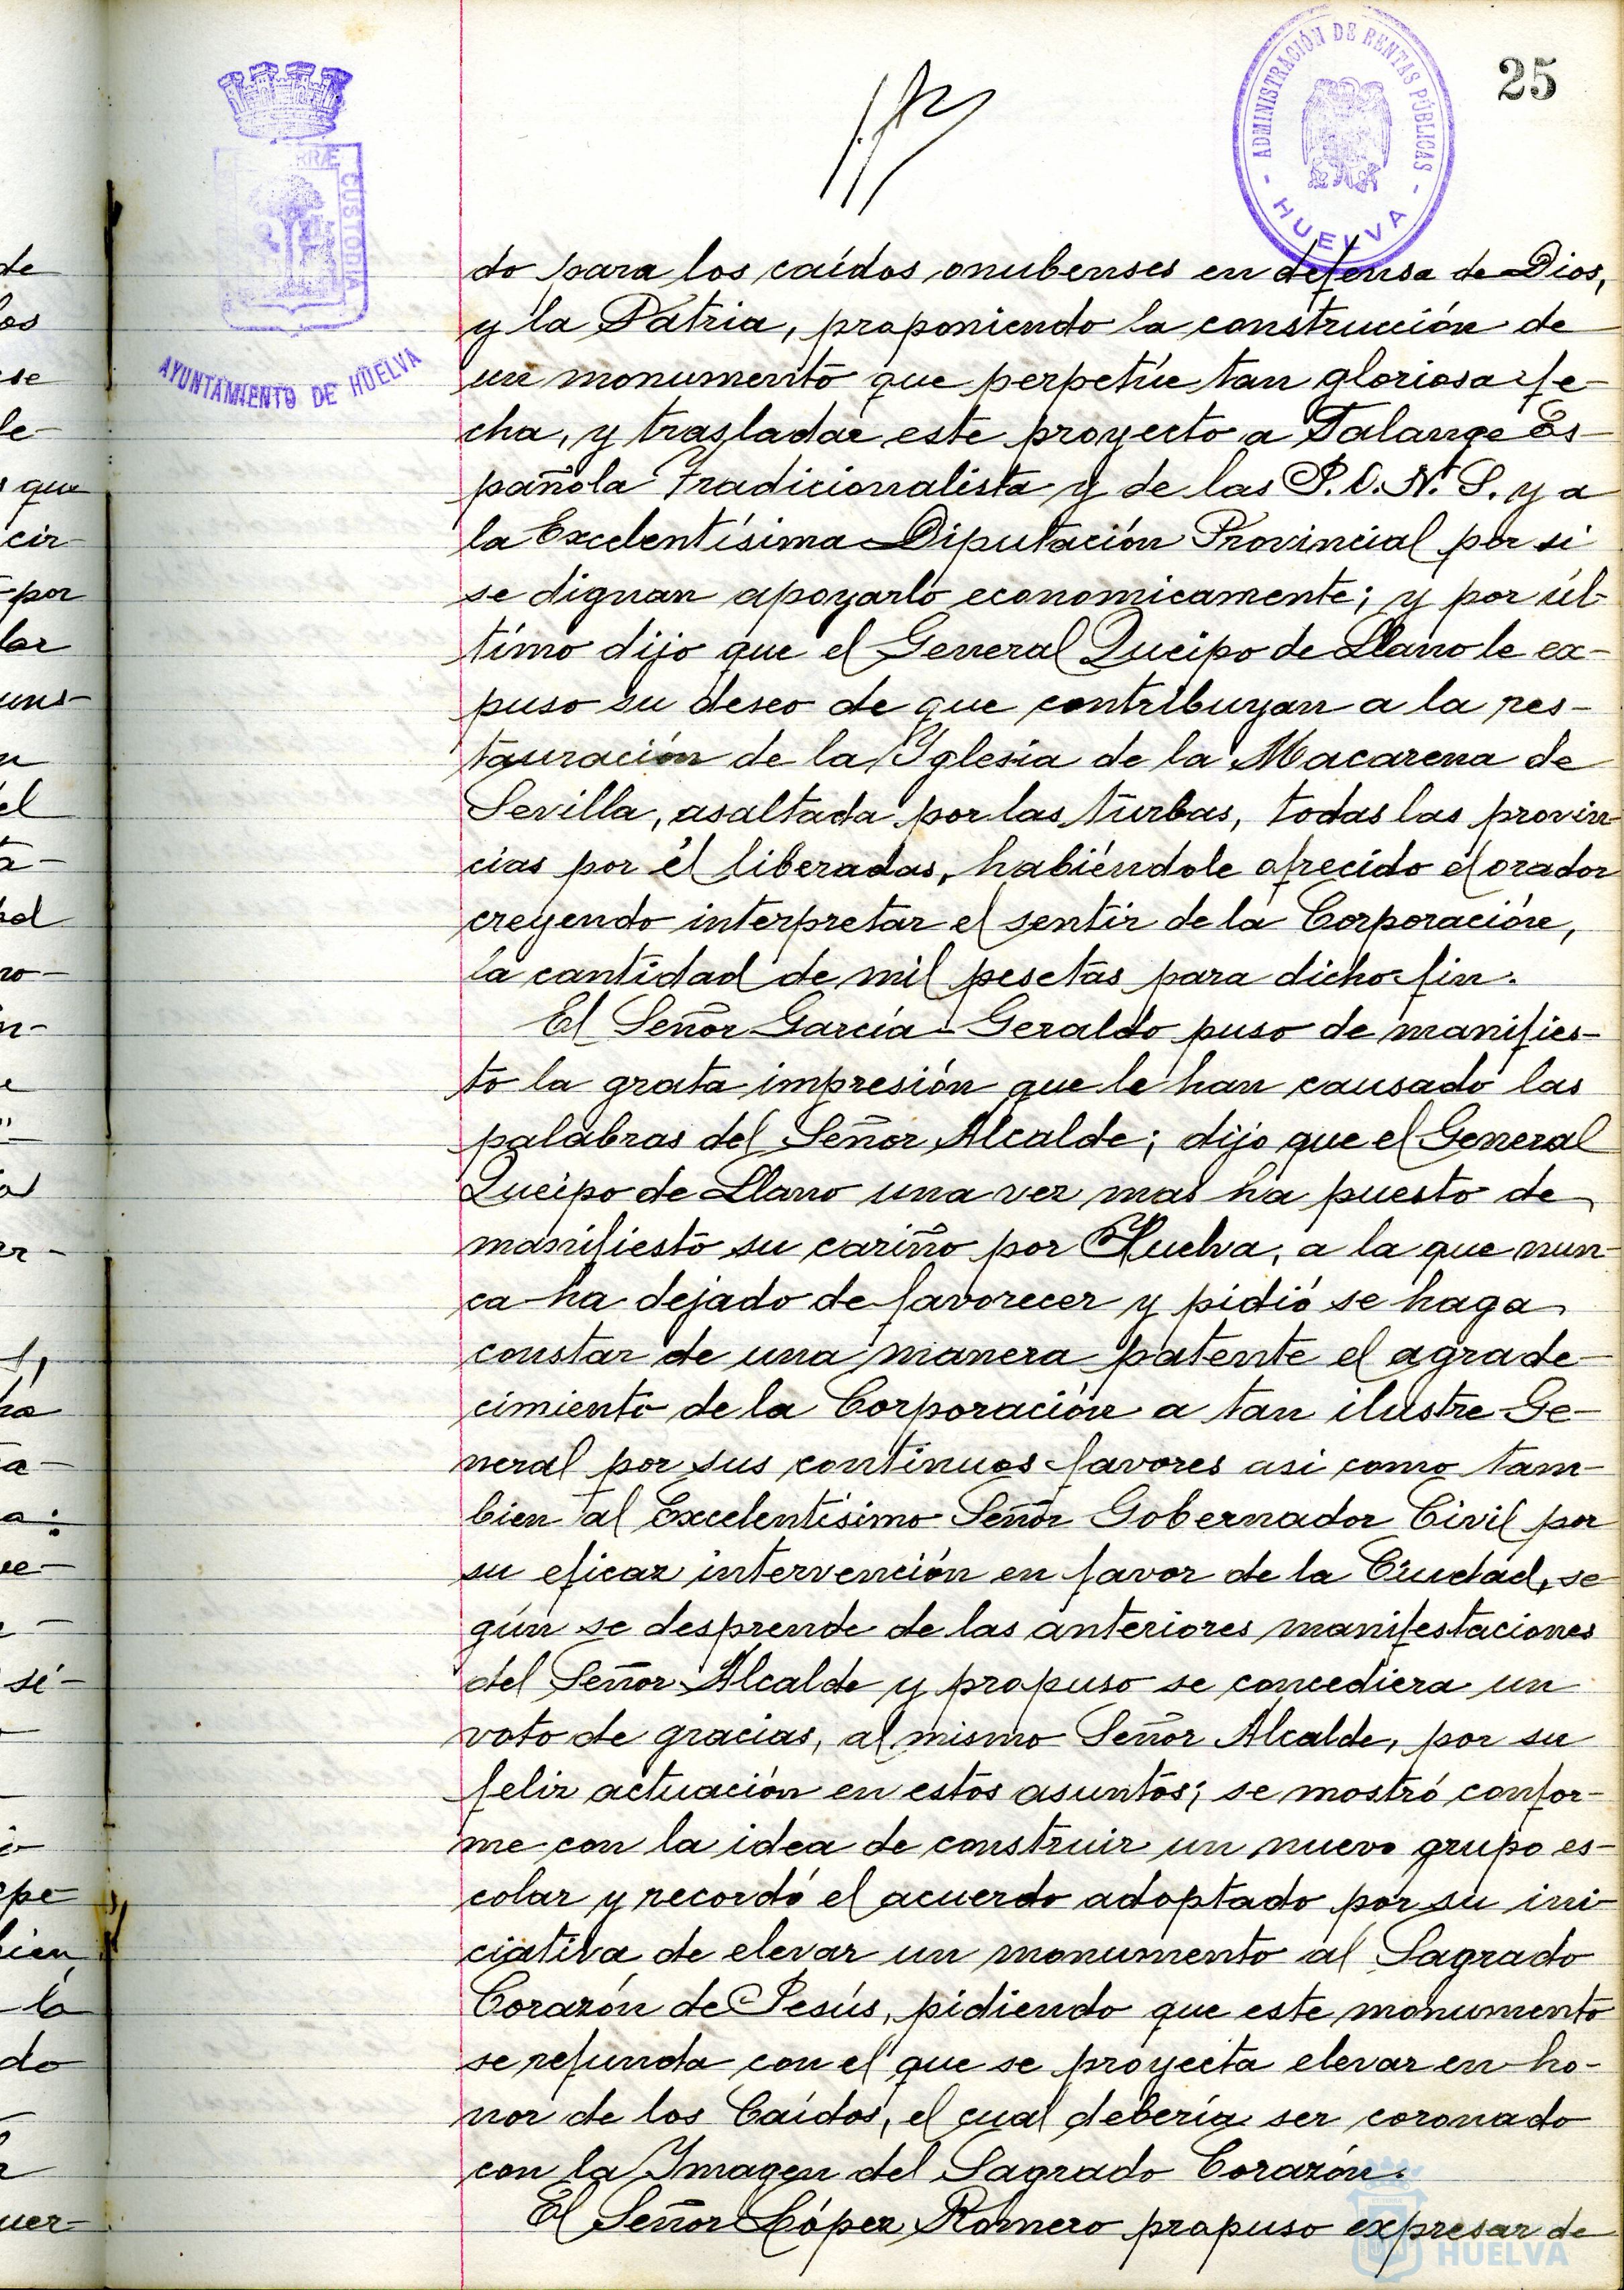 25
ADMINISTRACIÓN DE RENTAS PÚBLICAS
- HUELVA -
CUSTODIA
AYUNTAMIENTO DE HUELVA
do para los caídos onubenses en defensa de Dios,
y la Patria, proponiendo la construcción de
un monumento que perpetúe tan gloriosa fe-
cha, y trasladar este proyecto a Falange Es-
pañola Tradicionalista y de las J.O.N.S. y a
la Excelentísima Diputación Provincial por si
se dignan apoyarlo economicamente; y por úl-
timo dijo que el General Queipo de Llano le ex-
puso su deseo de que contribuyan a la res-
tauración de la Iglesia de la Macarena de
Sevilla, asaltada por las turbas, todas las provin-
cias por él liberadas, habiéndole ofrecido el orador
creyendo interpretar el sentir de la Corporación,
la cantidad de mil pesetas para dicho fin.
El Señor García-Geraldo puso de manifies-
to la grata impresión que le han causado las
palabras del Señor Alcalde; dijo que el General
Queipo de Llano una vez mas ha puesto de
manifiesto su cariño por Huelva, a la que nun-
ca ha dejado de favorecer y pidió se haga
constar de una manera patente el agrade-
cimiento de la Corporación a tan ilustre Ge-
neral por sus continuos favores asi como tam-
bien al Excelentísimo Señor Gobernador Civil por
su eficaz intervención en favor de la Ciudad, se
gún se desprende de las anteriores manifestaciones
del Señor Alcalde y propuso se concediera un
voto de gracias, al mismo Señor Alcalde, por su
feliz actuación en estos asuntos; se mostró confor-
me con la idea de construir un nuevo grupo es-
colar y recordó el acuerdo adoptado por su ini-
ciativa de elevar un monumento al Sagrado
Corazón de Jesús, pidiendo que este monumento
se refunda con el que se proyecta elevar en ho-
nor de los Caídos, el cual debería ser coronado
con la Imagen del Sagrado Corazón.
El Señor López Romero propuso expresar de
HUELVA